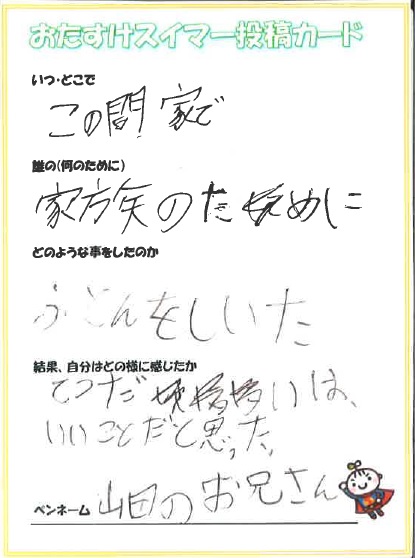 おたすけスイマー投稿カード
いつ・どこで
この間 家で
誰の(何のために)
家族のために
どのような事をしたのか
ふとんをしいた
結果、自分はどの様に感じたか
てつだいは、
いいことだと思った。
ペンネーム 山田のお兄さん